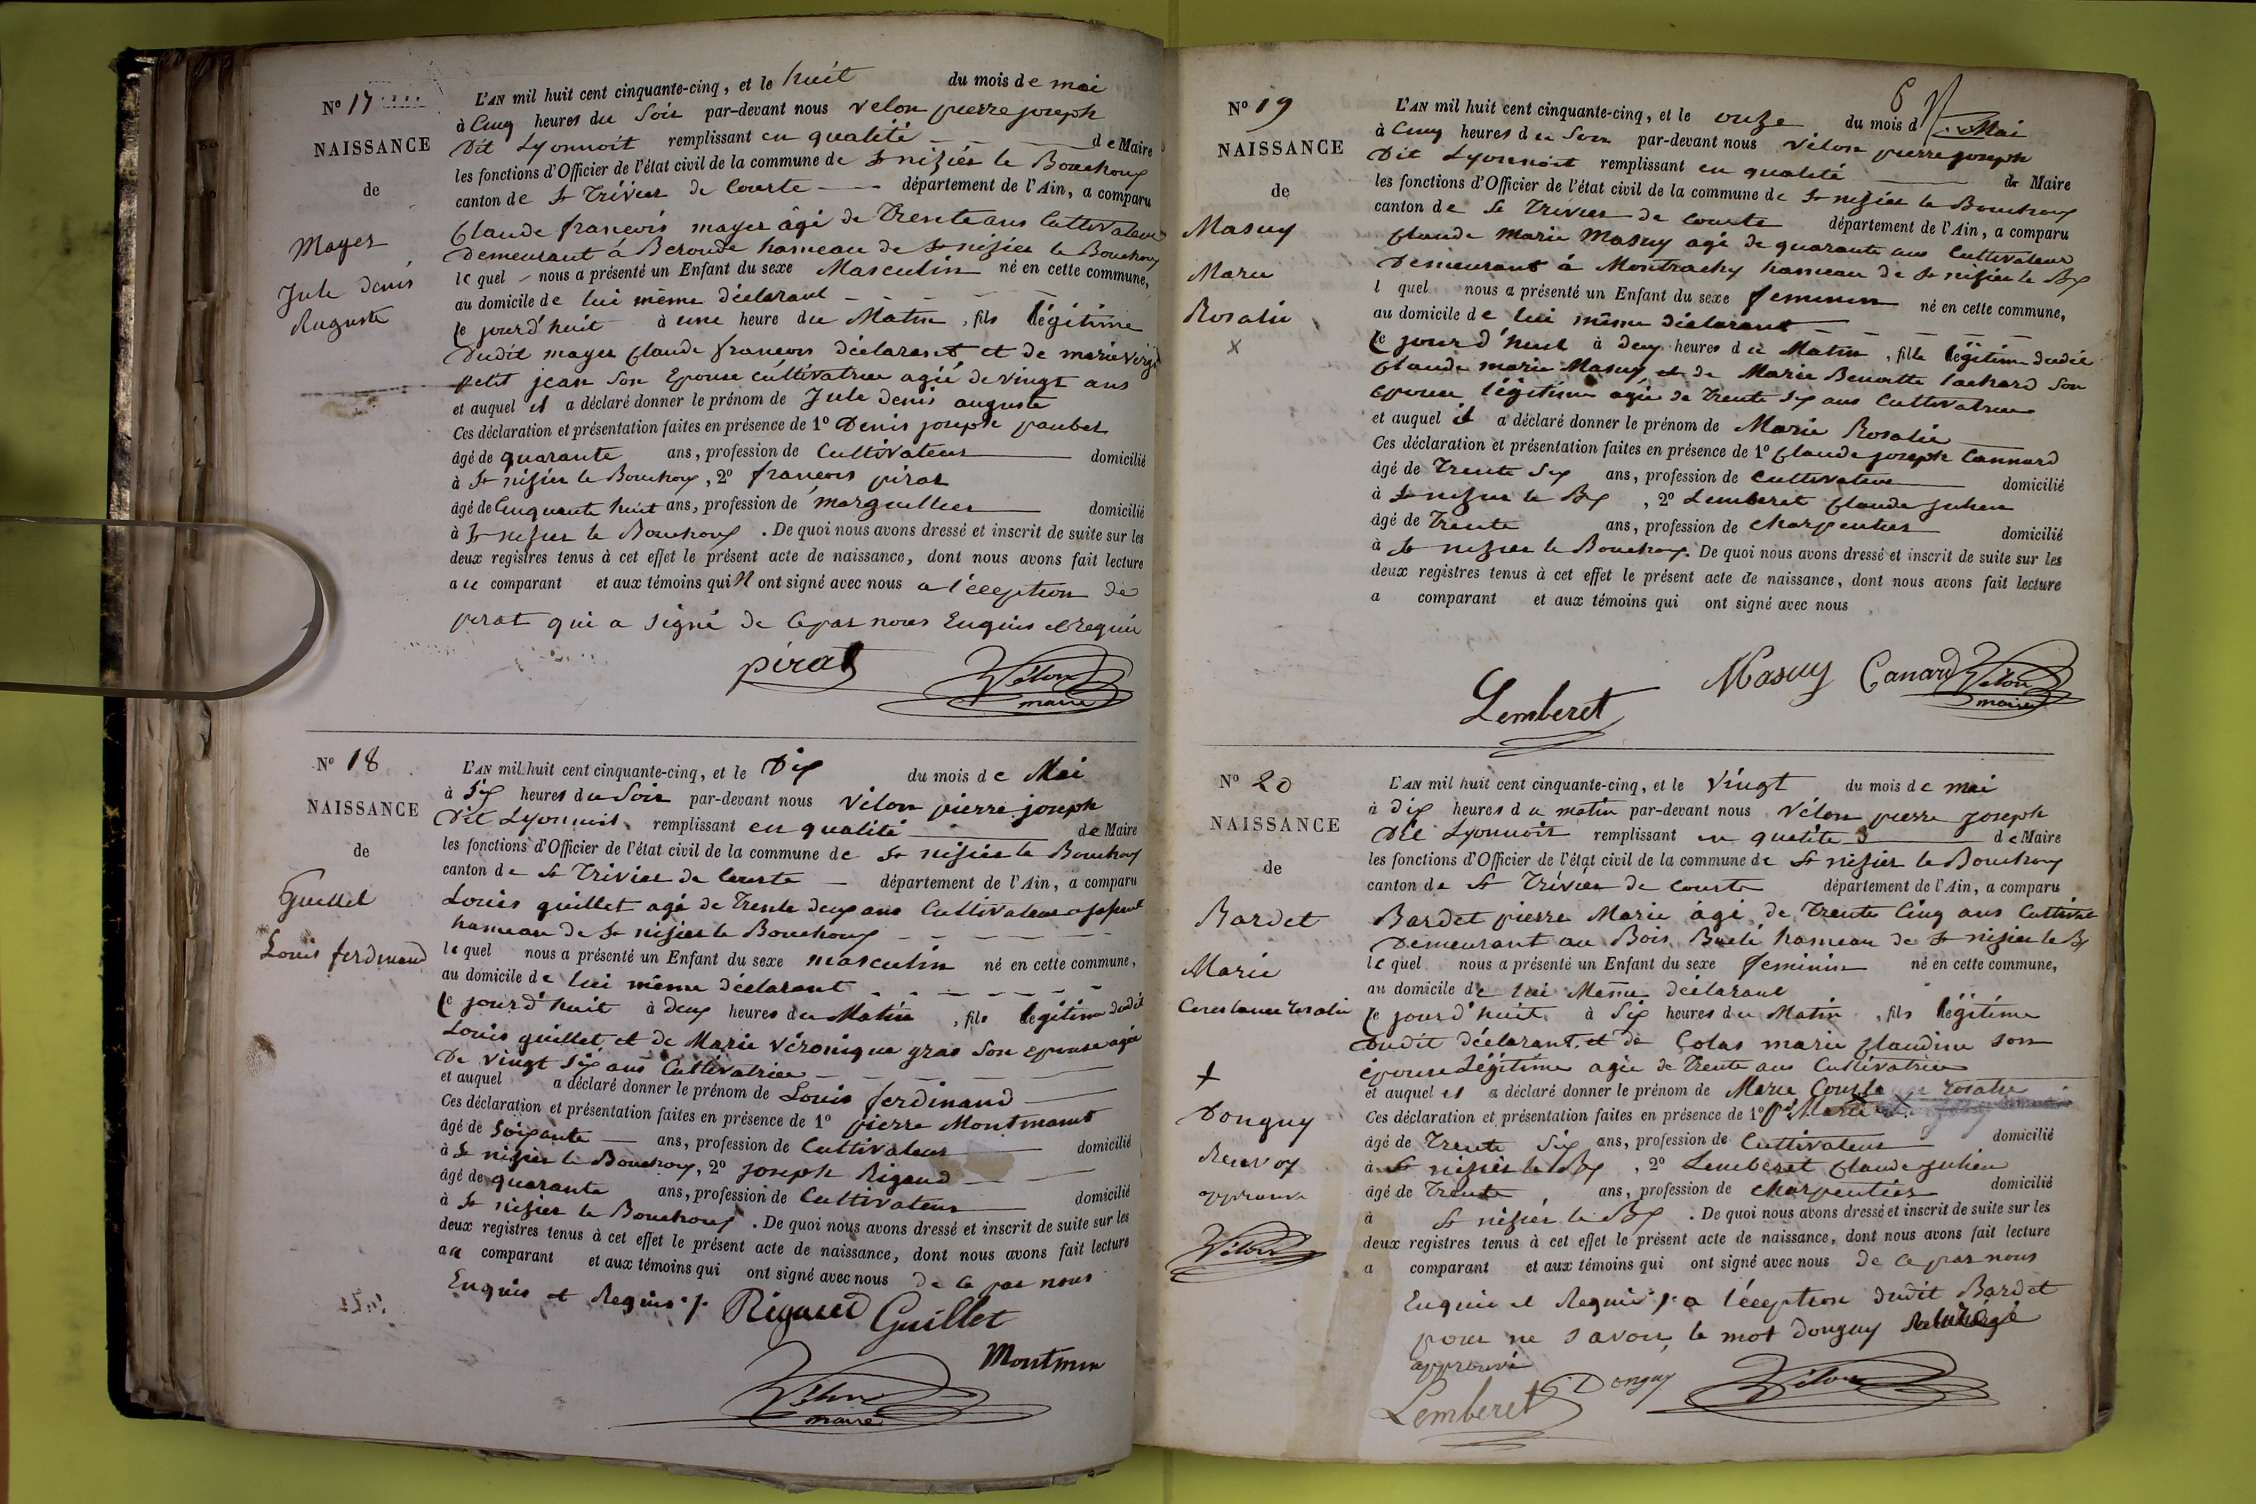 N° 17
NAISSANCE
de
Mayer
Jule denis
Auguste
L'AN mil huit cent cinquante-cinq, et le huit du mois de mai
à Cinq heures du Soir par-devant nous velon pierre joseph
Dit Lyonnoit remplissant en qualité de Maire
les fonctions d'Officier de l'état civil de la commune de St nizier le Bouchoux
canton de St Trivier de Courte département de l'Ain, a comparu
Claude francois mayer âgé de Trente ans Cultivateur
Demeurant á Beroude hameau de St nizier le Bouchoux
lequel nous a présenté un Enfant du sexe Masculin né en cette commune,
au domicile de lui même déclarant
ce jourd'huit à une heure du Matin, fils légitime
Dudit mayer Claude francois déclarant et de marie
petit jean Son Epouse cultivatrice agée de vingt ans
et auquel il a déclaré donner le prénom de Jule denis auguste
Ces déclaration et présentation faites en présence de 1° Denis joseph
âgé de quarante ans, profession de Cultivateur domicilié
à St nizier le Bouchoux, 2° francois pirat
âgé de Cinquante huit ans, profession de marguillier domicilié
à St nizier le Bouchoux. De quoi nous avons dressé et inscrit de suite sur les
deux registres tenus à cet effet le présent acte de naissance, dont nous avons fait lecture
au comparant et aux témoins qui N ont signé avec nous a l'éception de
pirat qui a signé de Ce par nous Enquis et requis
pirat Vélon
maire
N° 18
NAISSANCE
de
Guillet
Louis ferdinand
L'AN mil huit cent cinquante-cinq, et le Dix du mois de Mai
à Six heures du Soir par-devant nous Vélon pierre joseph
Dit Lyonnoit remplissant en qualité de Maire
les fonctions d'Officier de l'état civil de la commune de St nizier le Bouchoux
canton de St Trivier de Courte département de l'Ain, a comparu
Louis guillet agé de Trente deux ans Cultivateur
hameau de St nizier le Bouchoux
lequel nous a présenté un Enfant du sexe masculin né en cette commune,
au domicile de lui même déclarant
ce jourd'huit à deux heures du Matin, fils légitime dudit
Louis guillet et de Marie Véronique gras Son epouse agée
De vingt Six ans Cultivatrice
et auquel a déclaré donner le prénom de Louis ferdinand
Ces déclaration et présentation faites en présence de 1° pierre Montmant
âgé de Soixante ans, profession de Cultivateur domicilié
à St nizier le Bouchoux, 2° joseph Rigaud
âgé de quarante ans, profession de Cultivateur domicilié
à St nizier le Bouchoux. De quoi nous avons dressé et inscrit de suite sur les
deux registres tenus à cet effet le présent acte de naissance, dont nous avons fait lecture
au comparant et aux témoins qui ont signé avec nous de Ce par nous
Enquis et Requis
Rigaud Guillet
Montmin
Vélon
maire
6
N° 19
NAISSANCE
de
Masuy
Marie
Rosalie
x
L'AN mil huit cent cinquante-cinq, et le onze du mois d Mai
à Cinq heures du Soir par-devant nous Vélon pierre joseph
Dit Lyonnoit remplissant en qualité de Maire
les fonctions d'Officier de l'état civil de la commune de St nizier le Bouchoux
canton de St Trivier de Courte département de l'Ain, a comparu
Claude Marie Masuy agé de quarante ans Cultivateur
Demeurant á Montrachy hameau de St nizier le Bx
l quel nous a présenté un Enfant du sexe feminin né en cette commune,
au domicile de lui même déclarant
ce jourd'huit à deux heures du Matin, fille légitime dudit
Claude marie Masuy et de Marie Benoitte Pachard Son
epouse légitime agée de Trente Six ans Cultivatrice
et auquel il a déclaré donner le prénom de Marie Rosalie
Ces déclaration et présentation faites en présence de 1° Claude joseph Cannard
âgé de Trente Six ans, profession de Cultivateur domicilié
à St nizier le Bx, 2° Lemberet Claude Julien
âgé de Trente ans, profession de charpentier domicilié
à St nizier le Bouchoux. De quoi nous avons dressé et inscrit de suite sur les
deux registres tenus à cet effet le présent acte de naissance, dont nous avons fait lecture
a comparant et aux témoins qui ont signé avec nous
Masuy Canard Vélon
maire
Lemberet
N° 20
NAISSANCE
de
Bardet
Marie
Constance rosalie
x
Donguy
Renvoy
approuvé
Vélon
L'AN mil huit cent cinquante-cinq, et le vingt du mois de mai
à dix heures du matin par-devant nous Vélon pierre joseph
Dit Lyonnoit remplissant en qualité de Maire
les fonctions d'Officier de l'état civil de la commune de St nizier le Bouchoux
canton de St Trivier de Courte département de l'Ain, a comparu
Bardet pierre Marie âgé de Trente Cinq ans Cultivat
Demeurant au Bois hameau de St nizier le Bx
lequel nous a présenté un Enfant du sexe feminin né en cette commune,
au domicile de lui Même déclarant
ce jourd'huit à Six heures du Matin, fils légitime
dudit déclarant et de Colas marie Claudine son
épouse Légitime agée de Trente ans Cultivatrice
et auquel il a déclaré donner le prénom de Marie rosalie
Ces déclaration et présentation faites en présence de 1° Marie
âgé de Trente Six ans, profession de Cultivateur domicilié
à St nizier le Bx, 2° Lemberet Claude Julien
âgé de Trente ans, profession de charpentier domicilié
à St nizier le Bx. De quoi nous avons dressé et inscrit de suite sur les
deux registres tenus à cet effet le présent acte de naissance, dont nous avons fait lecture
a comparant et aux témoins qui ont signé avec nous de Ce par nous
Enquis et Requis a l'éception dudit Bardet
pour ne savoir, le mot donguy
approuvé
Lemberet Donguy Vélon